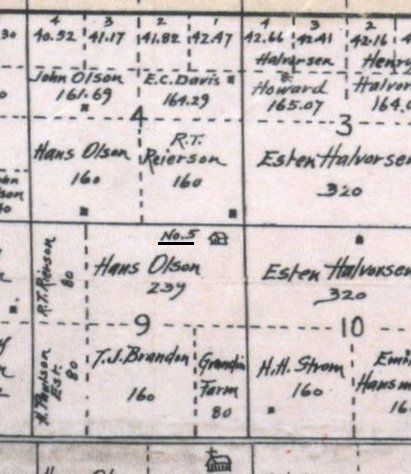 30 4 3 2 1 4 3 2
40.52 41.17 41.82 42.47 42.66 42.41 42.16
Halvorsen Henry
John Olson E.C. Davis & Howard Halvor
161.69 164.29 165.07 164.
4 3
Hans Olson R.T. Reierson Esten Halvorsen
160 160 320
No. 5
R.T. Rierson 80
Hans Olson Esten Halvorsen
239 320
9 10
Est. 80
T.J. Brandon Grandin Farm H.H. Strom Emi
160 80 160 Hansm
16